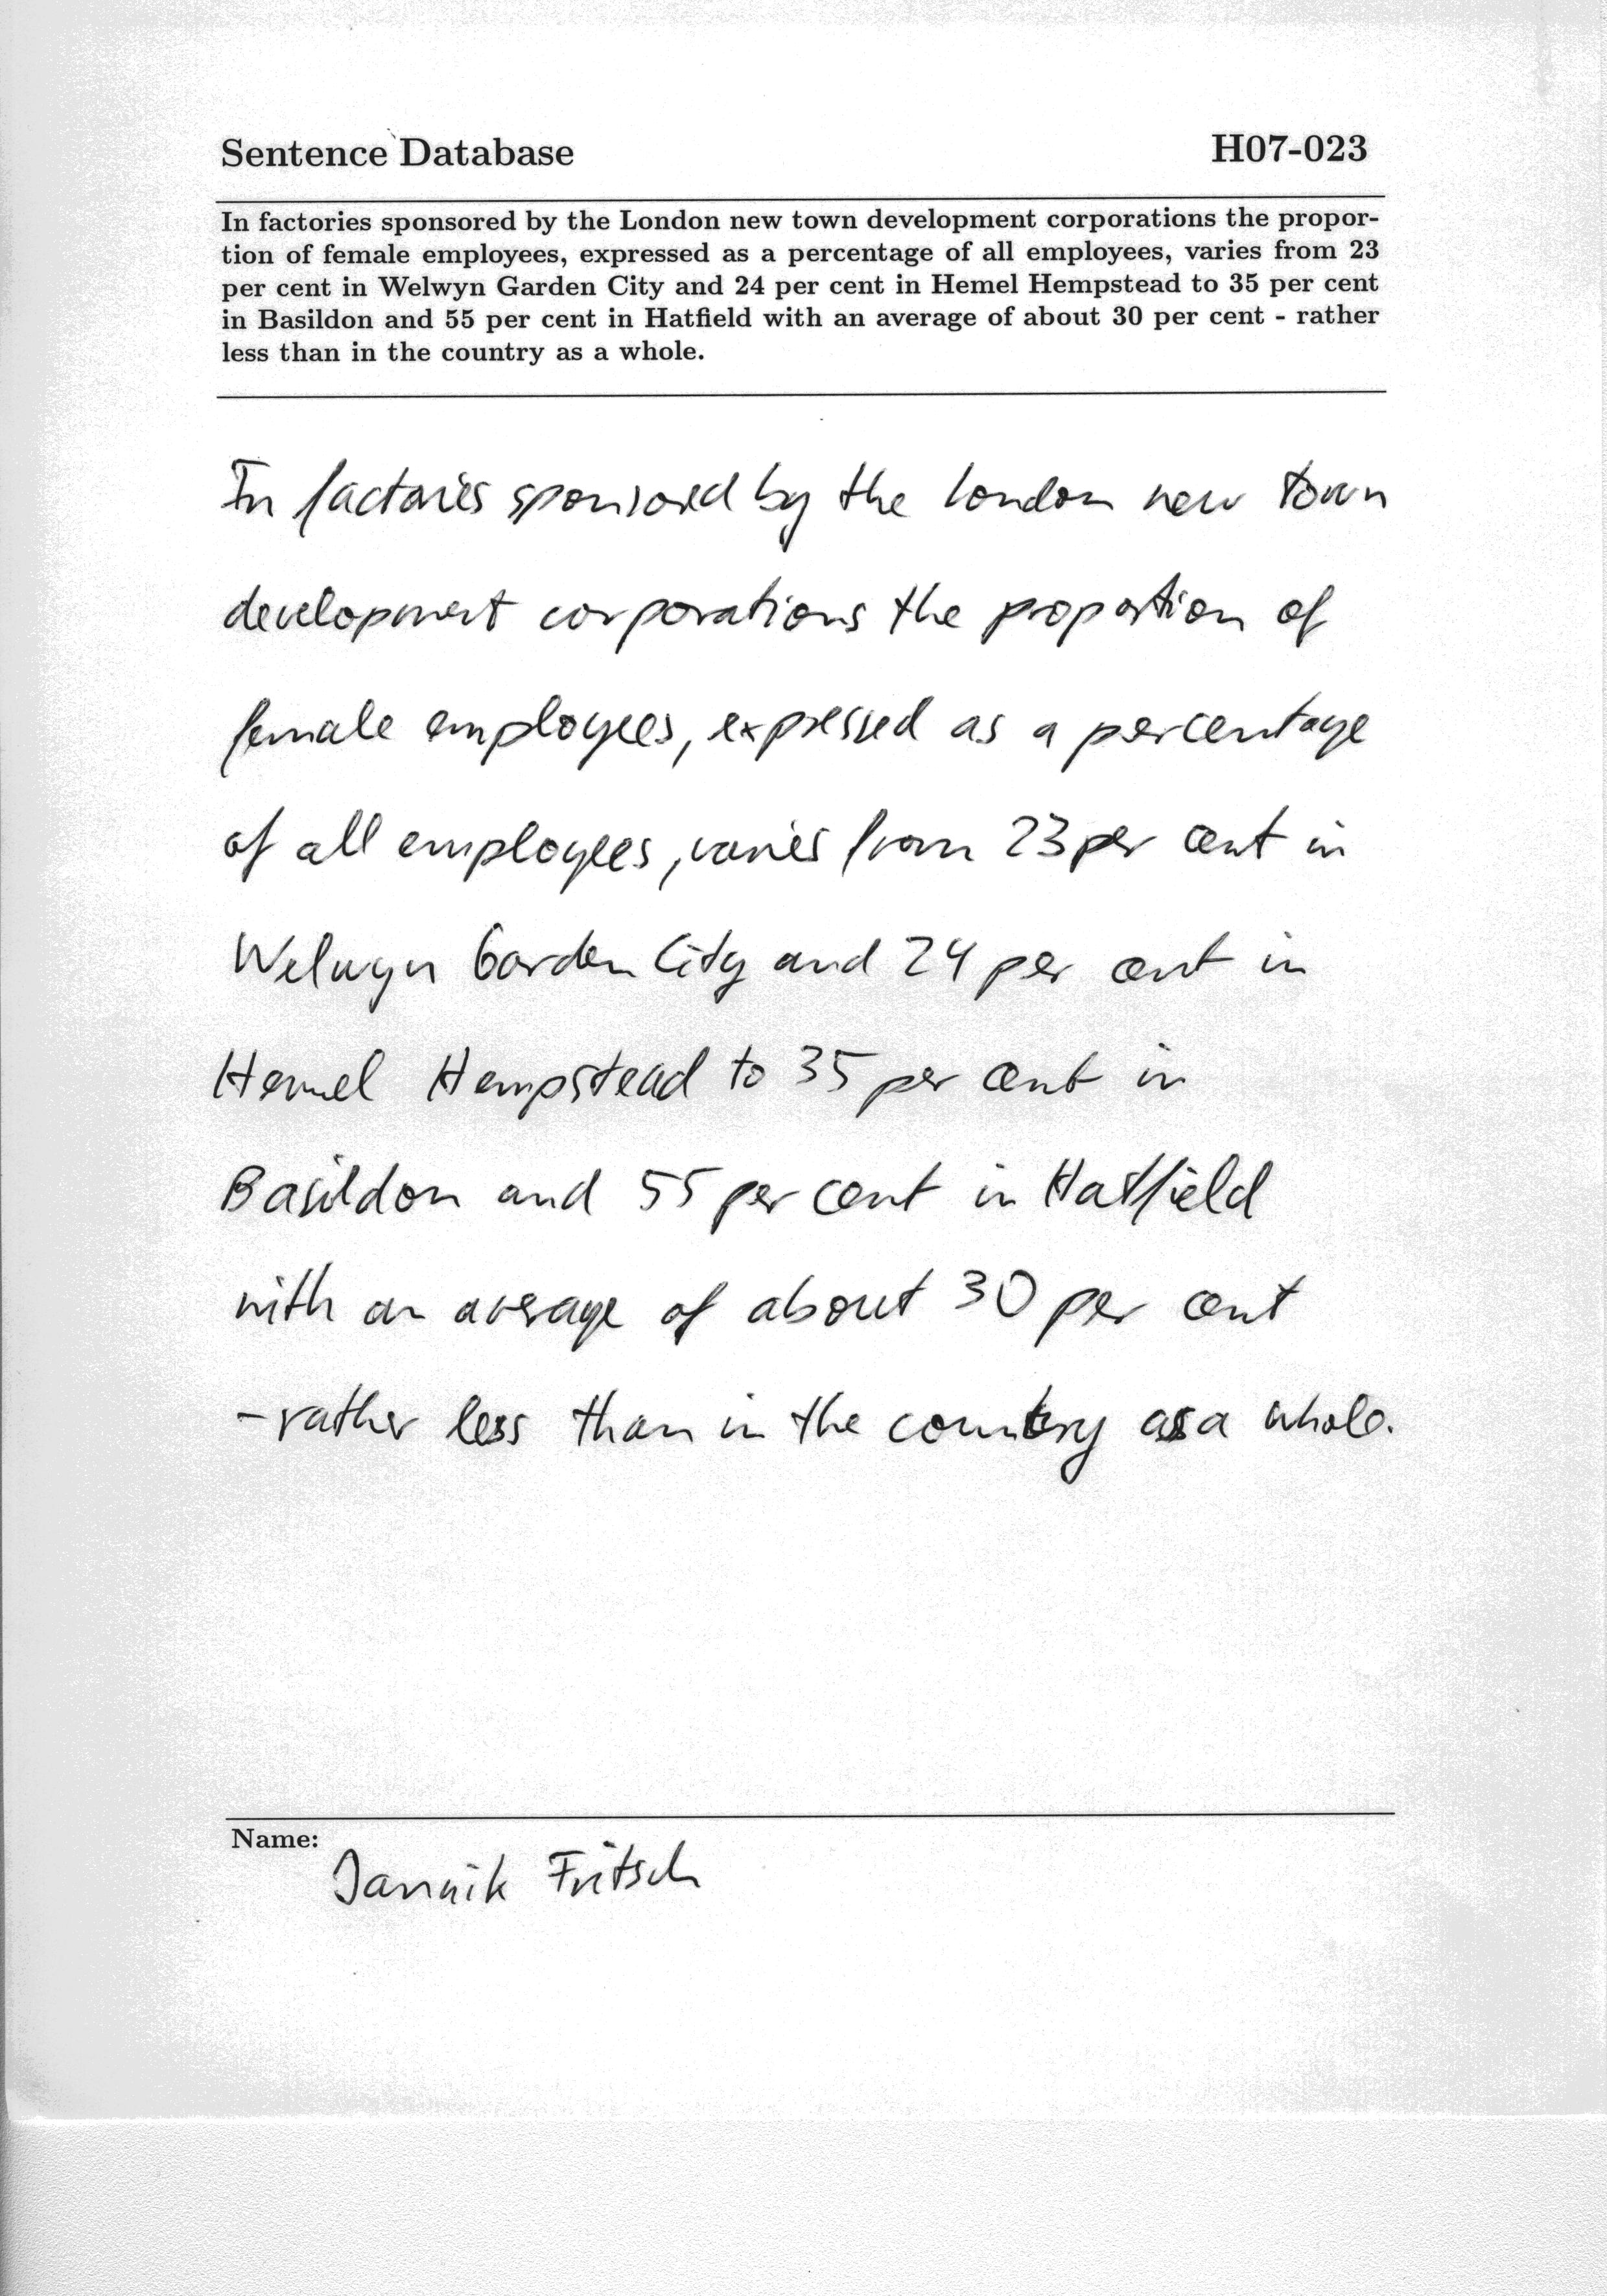 Sentence Database
H07-023
In factories sponsored by the London new town development corporations the propor-
tion of female employees, expressed as a percentage of all employees, varies from 23
per cent in Welwyn Garden City and 24 per cent in Hemel Hempstead to 35 per cent
in Basildon and 55 per cent in Hatfield with an average of about 30 per cent - rather
less than in the country as a whole.
In factories sponsored by the London new town
development corporations the proportion of
female employees, expressed as a percentage
of all employees, varies from 23 per cent in
Welwyn Garden City and 24 per cent in
Hemel Hempstead to 35 per cent in
Basildon and 55 per cent in Hatfield
with an average of about 30 per cent
- rather less than in the country as a whole.
Name:
Jannik Fritsch